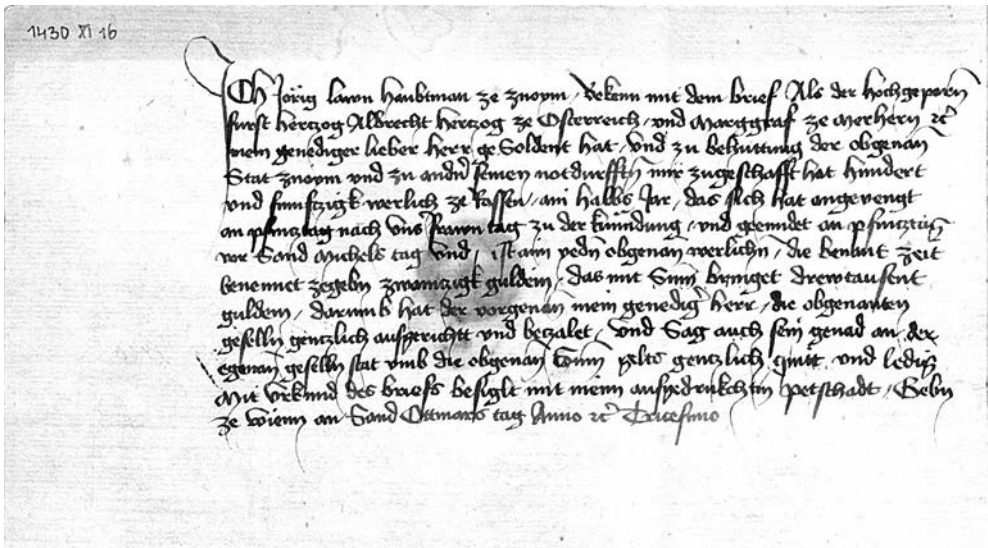 1430 XI 16
Ich Jorig lawn haubtman ze znoym / Bekenn mit dem brief Als der hochgeporn
furst hertzog Albrecht hertzog ze Osterreich / und Marggraf ze Merhern etc
mein genediger lieber herr ge Soldent hat / und zu behuttung der obgenan
Stat znoym und zu andern seinen notdurfften mir zugeschafft hat hundert
und funftzigk werlich ze Rossen / ain halbs Jar / das sich hat angevengt
an phincztag nach unser frawn tag zu der kundung / und geendet an phincztag
vor Sand Michels tag und / ist ain yeden obgenan werlichn / die benant zeit
benennet zegebn zwaintzigk guldein / das mit Sum bringet drewtausent
guldein / darumb hat der vorgenan mein genediger herr / die obgenanten
geselln gentzlich ausgericht und betzalet / und Sag auch sein genad an der
egenan geselln stat umb die obgenan Sumn gelts gentzlich quitt und ledig
Mit urkund des briefs besiglt mit meinn aufgedrukchtm petschadt / Gebn
ze wienn an Sand Ottmars tag Anno etc Tricesimo